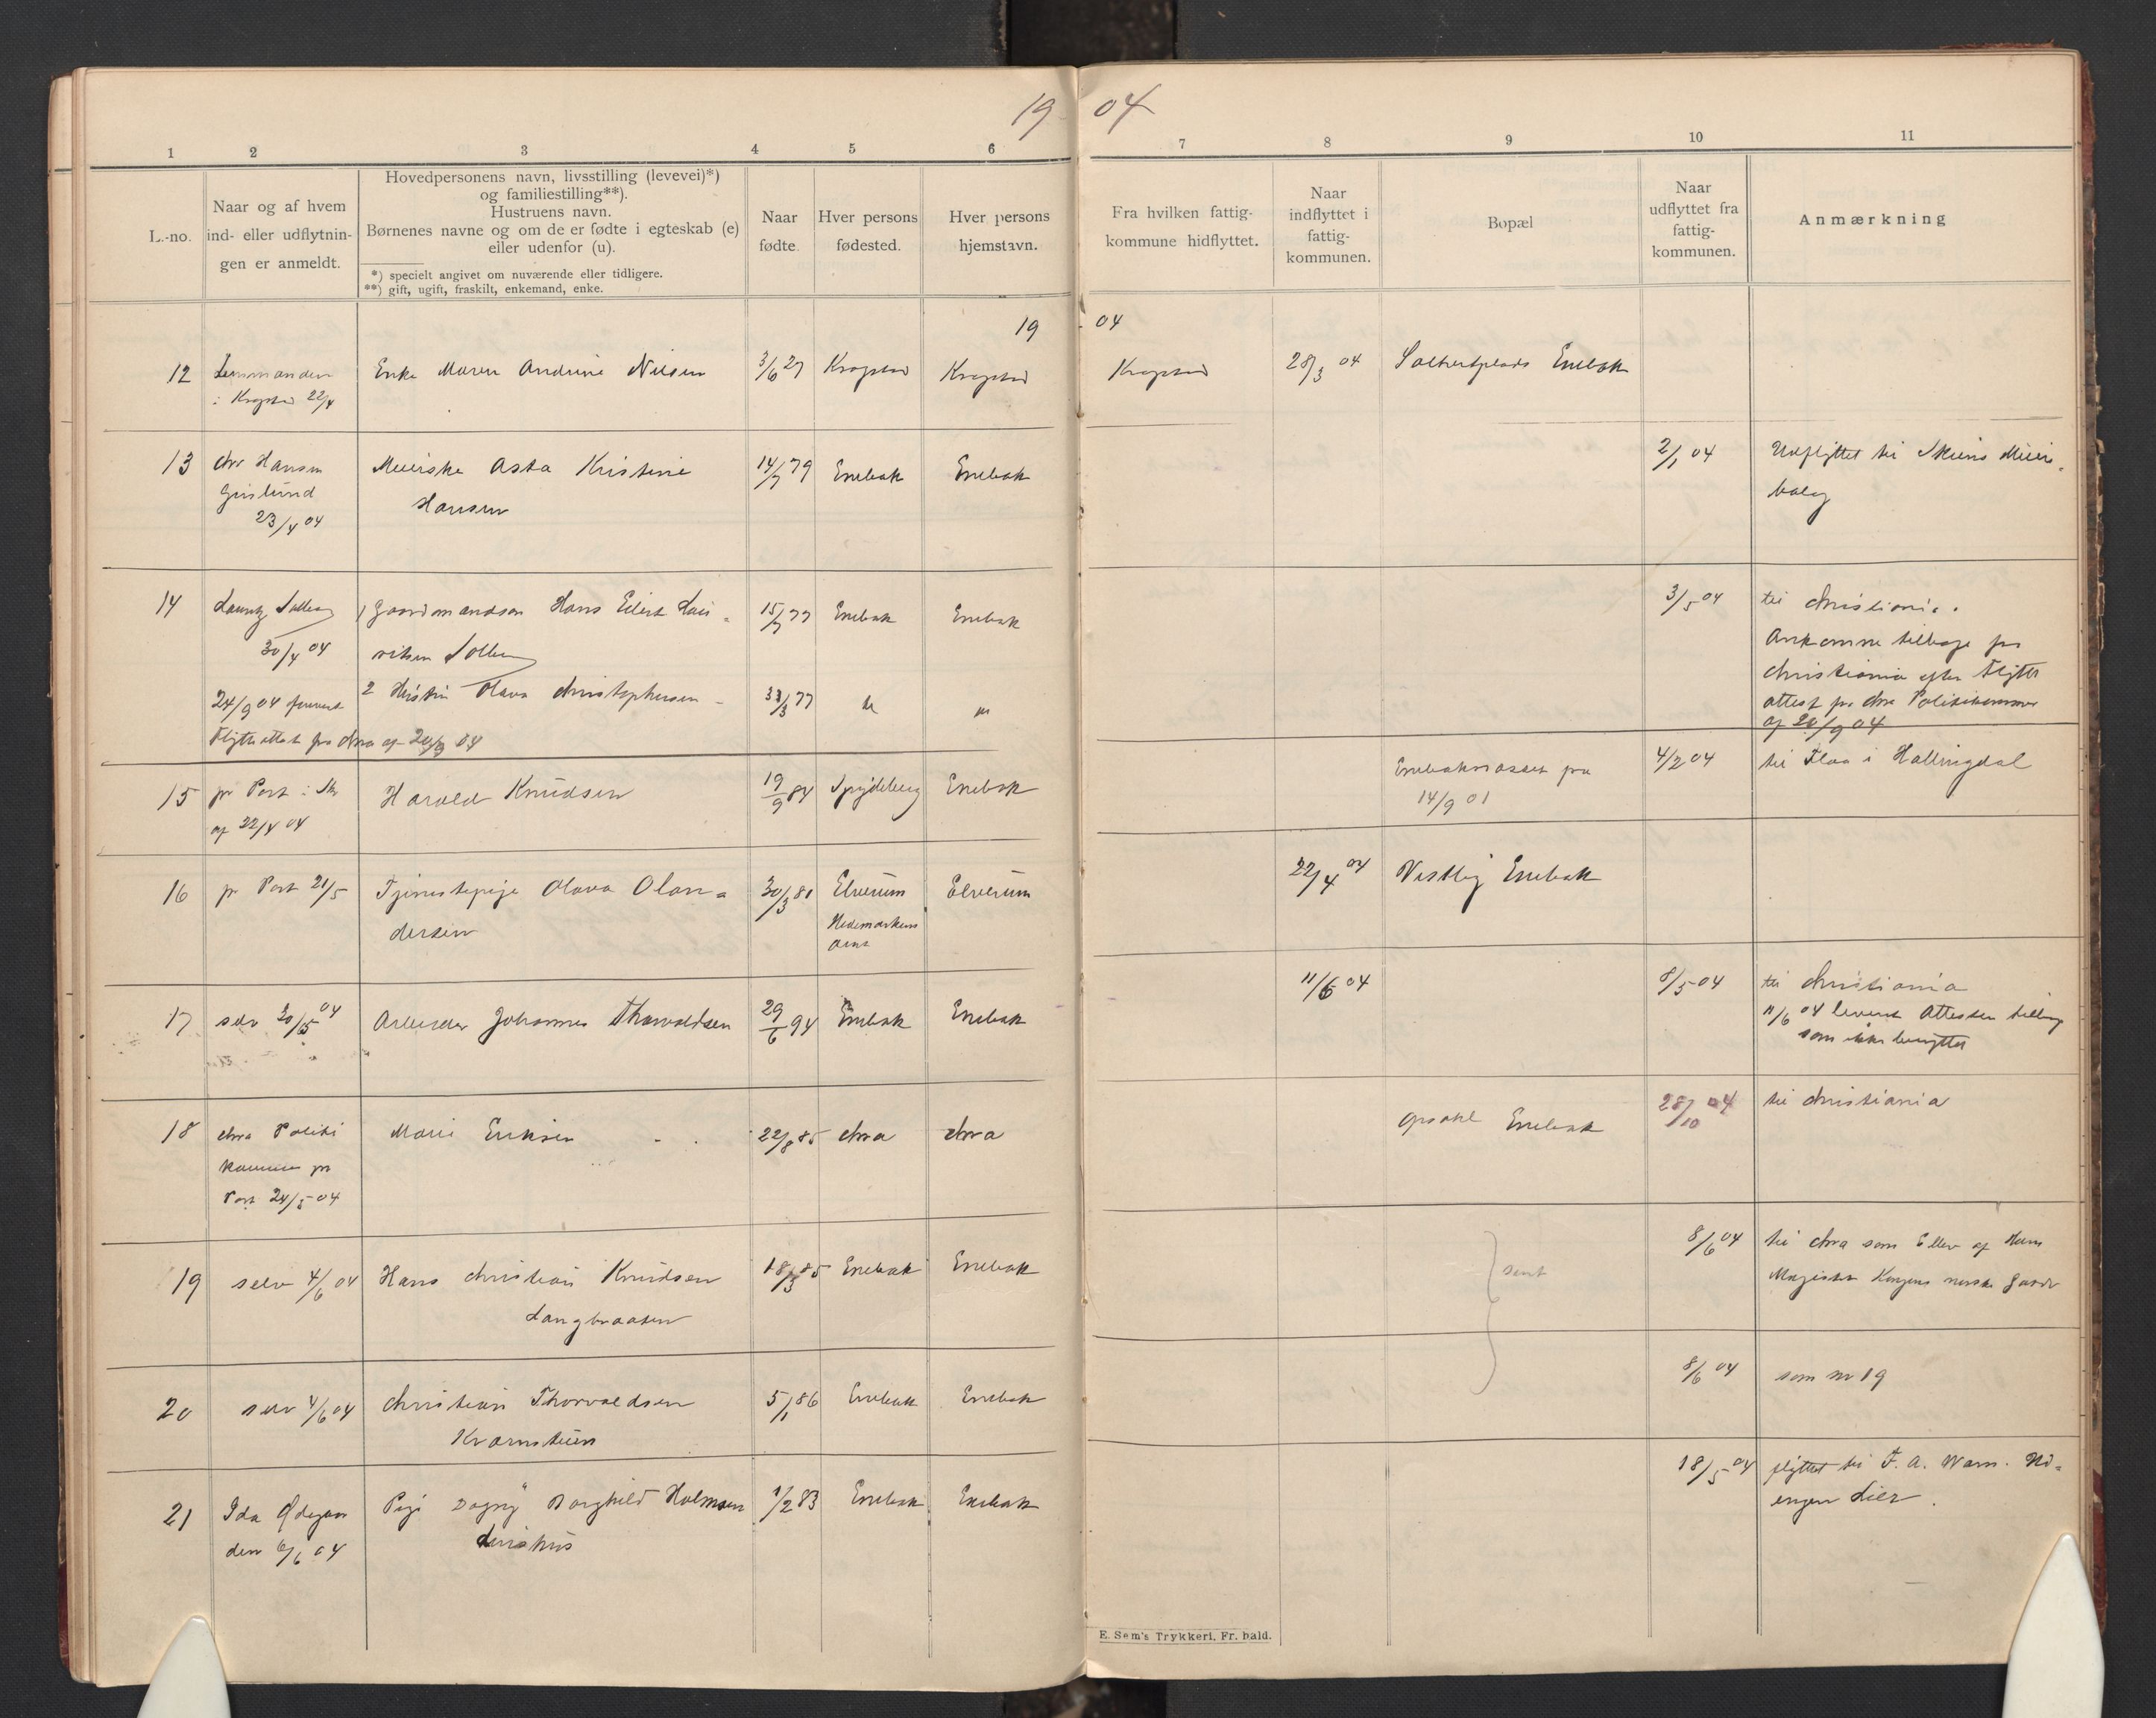 19 04
1 2 3 4 5 6 7 8 9 10 11
L.-no.
Naar og af hvem
ind- eller udflytnin-
gen er anmeldt.
Hovedpersonens navn, livsstilling (levevei)*)
og familiestilling**).
Hustruens navn.
Børnenes navne og om de er fødte i egteskab (e)
eller udenfor (u).
*) specielt angivet om nuværende eller tidligere.
**) gift, ugift, fraskilt, enkemand, enke.
Naar
fødte.
Hver persons
fødested.
Hver persons
hjemstavn.
Fra hvilken fattig-
kommune hidflyttet.
Naar
indflyttet i
fattig-
kommunen.
Bopæl
Naar
udflyttet fra
fattig-
kommunen.
Anmærkning
19 04
12 Lensmanden Enke Maren Andrine Nilsen 3/6 27 Krogstad Krogstad Krogstad 28/3 04 Enebak
i Krogstad 22/4
13 Chr Hansen Meierske Asta Kristine 14/7 79 Enebak Enebak 2/1 04 Udflyttet til Skiens Meie-
Hansen
23/4 04
14 Lauritz Solberg 1 Gaardmandsøn Hans Eilert Lau- 15/7 77 Enebak Enebak 3/5 04 til Christiania.
30/4 04 ritsen Solberg Ankomne tilbage fra
Christiania efter Flytte
24/9 04 2 Hustru Olava Christophersen 77 attest fra Chra Politikammer
Flytteattest fra Chra af 04 af 20/9 04
15 pr Post i Ski Harald Knudsen 19/9 84 Spydeberg Enebak 4/2 04 til Flaa i Hallingdal
af 22/4 04 14/9 01
16 pr Post 21/5 Tjenestepige Olava Olau= 30/3 80 Elverum Elverum 22/4 04 Vestby Enebak
dersen Hedemarkens
Amt
17 selv 30/5 04 Arbeider Johannes Thorvaldsen 29/6 94 Enebak Enebak 11/6 04 8/5 04 til Christiania
11/6 04 leveret Attesten tilbage
som ikke benyttet
18 Chra Politi Marie Eriksen 22/8 85 Chra Chra Opsahl Enebak 28/10 04 til Christiania
kammer pr
Post 24/5 04
19 selv 4/6 04 Hans Christian Knudsen 18/3 85 Enebak Enebak 8/6 04 til Chra som Elev af Hans
Langbraaten Majestæt Kongens norske Garde
20 selv 4/6 04 Christian Thorvaldsen 5/1 86 Enebak Enebak 8/6 04 som nr 19
Kvarnstuen
21 Ida Ødegaard Pige Dagny Borghild Holmsen 1/2 83 Enebak Enebak 18/5 04 flyttet til F. A.
den 6/6 04 engen Lier.
E. Sem's Trykkeri, Fr. hald.